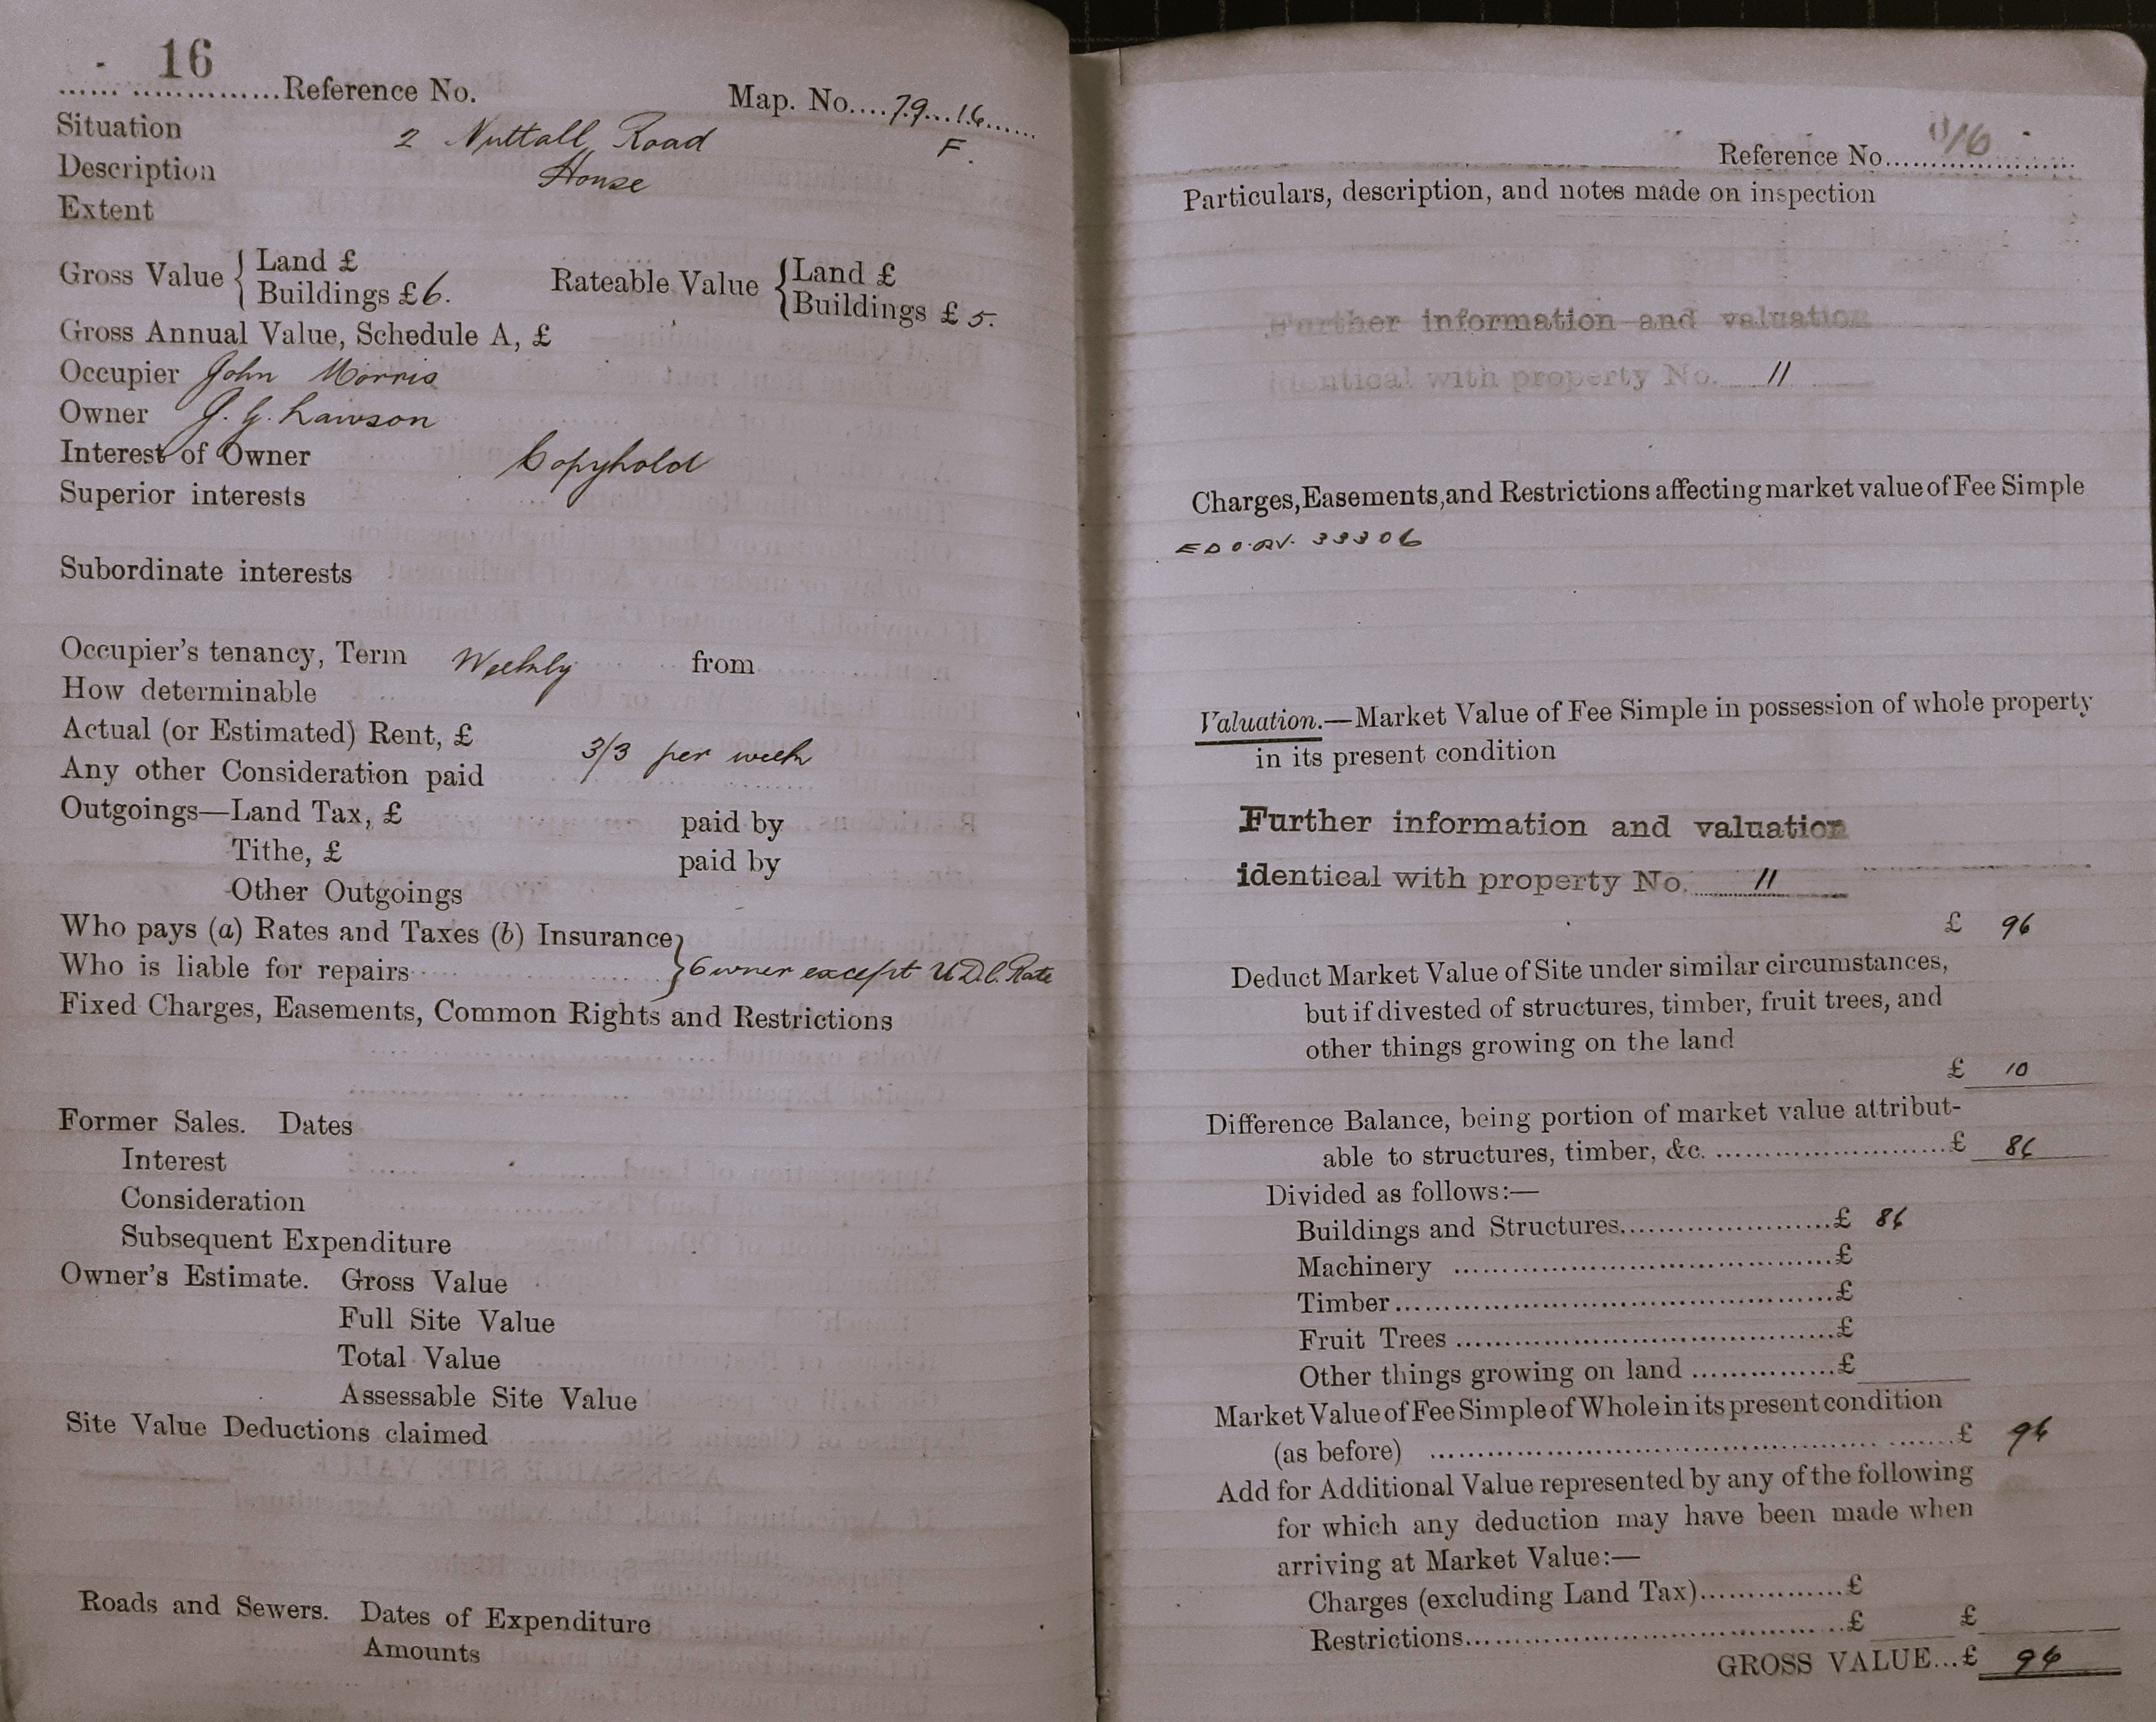 16
Reference No.
Map. No. 79.16
F.
Situation 2 Nuttall Road
Description House
Extent
Gross Value { Land £
Buildings £ 6.
Rateable Value { Land £
Buildings £ 5.
Gross Annual Value, Schedule A, £
Occupier John Morris
Owner J. G. Lawson
Interest of Owner Copyhold
Superior interests
Subordinate interests
Occupier's tenancy, Term Weekly from
How determinable
Actual (or Estimated) Rent, £ 3/3 per week
Any other Consideration paid
Outgoings—Land Tax, £ paid by
Tithe, £ paid by
Other Outgoings
Who pays (a) Rates and Taxes (b) Insurance }
Who is liable for repairs } Owner except U.D.C. Rate
Fixed Charges, Easements, Common Rights and Restrictions
Former Sales. Dates
Interest
Consideration
Subsequent Expenditure
Owner's Estimate. Gross Value
Full Site Value
Total Value
Assessable Site Value
Site Value Deductions claimed
Roads and Sewers. Dates of Expenditure
Amounts
Reference No. 16
Particulars, description, and notes made on inspection
Further information and valuation
identical with property No. 11
Charges, Easements, and Restrictions affecting market value of Fee Simple
33306
Valuation.—Market Value of Fee Simple in possession of whole property
in its present condition
Further information and valuation
identical with property No. 11
£ 96
Deduct Market Value of Site under similar circumstances,
but if divested of structures, timber, fruit trees, and
other things growing on the land
£ 10
Difference Balance, being portion of market value attribut-
able to structures, timber, &c. £ 86
Divided as follows:—
Buildings and Structures £ 86
Machinery £
Timber £
Fruit Trees £
Other things growing on land £
Market Value of Fee Simple of Whole in its present condition
(as before) £ 96
Add for Additional Value represented by any of the following
for which any deduction may have been made when
arriving at Market Value:—
Charges (excluding Land Tax) £
Restrictions £ £
GROSS VALUE...£ 96